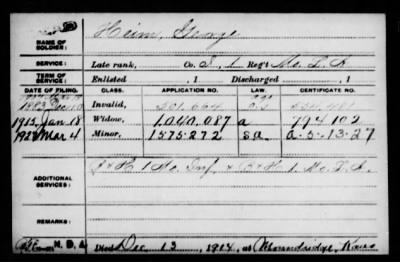 NAME OF SOLDIER: Heim, George
SERVICE: Late rank, Co. S, 1 Reg't Mo. L. A
TERM OF SERVICE: Enlisted , 1 Discharged , 1
DATE OF FILING. CLASS. APPLICATION NO. LAW. CERTIFICATE NO.
1883 Dec Invalid,
1915 Jan 18 Widow, 1,040,087 a 794 102
Mar 4 Minor, 1575-272 sa a-5-13-27
ADDITIONAL SERVICES: 1 Mo. Inf. 1 Mo. L. A.
REMARKS:
Died Dec 13, 1914, at Moundridge, Kans